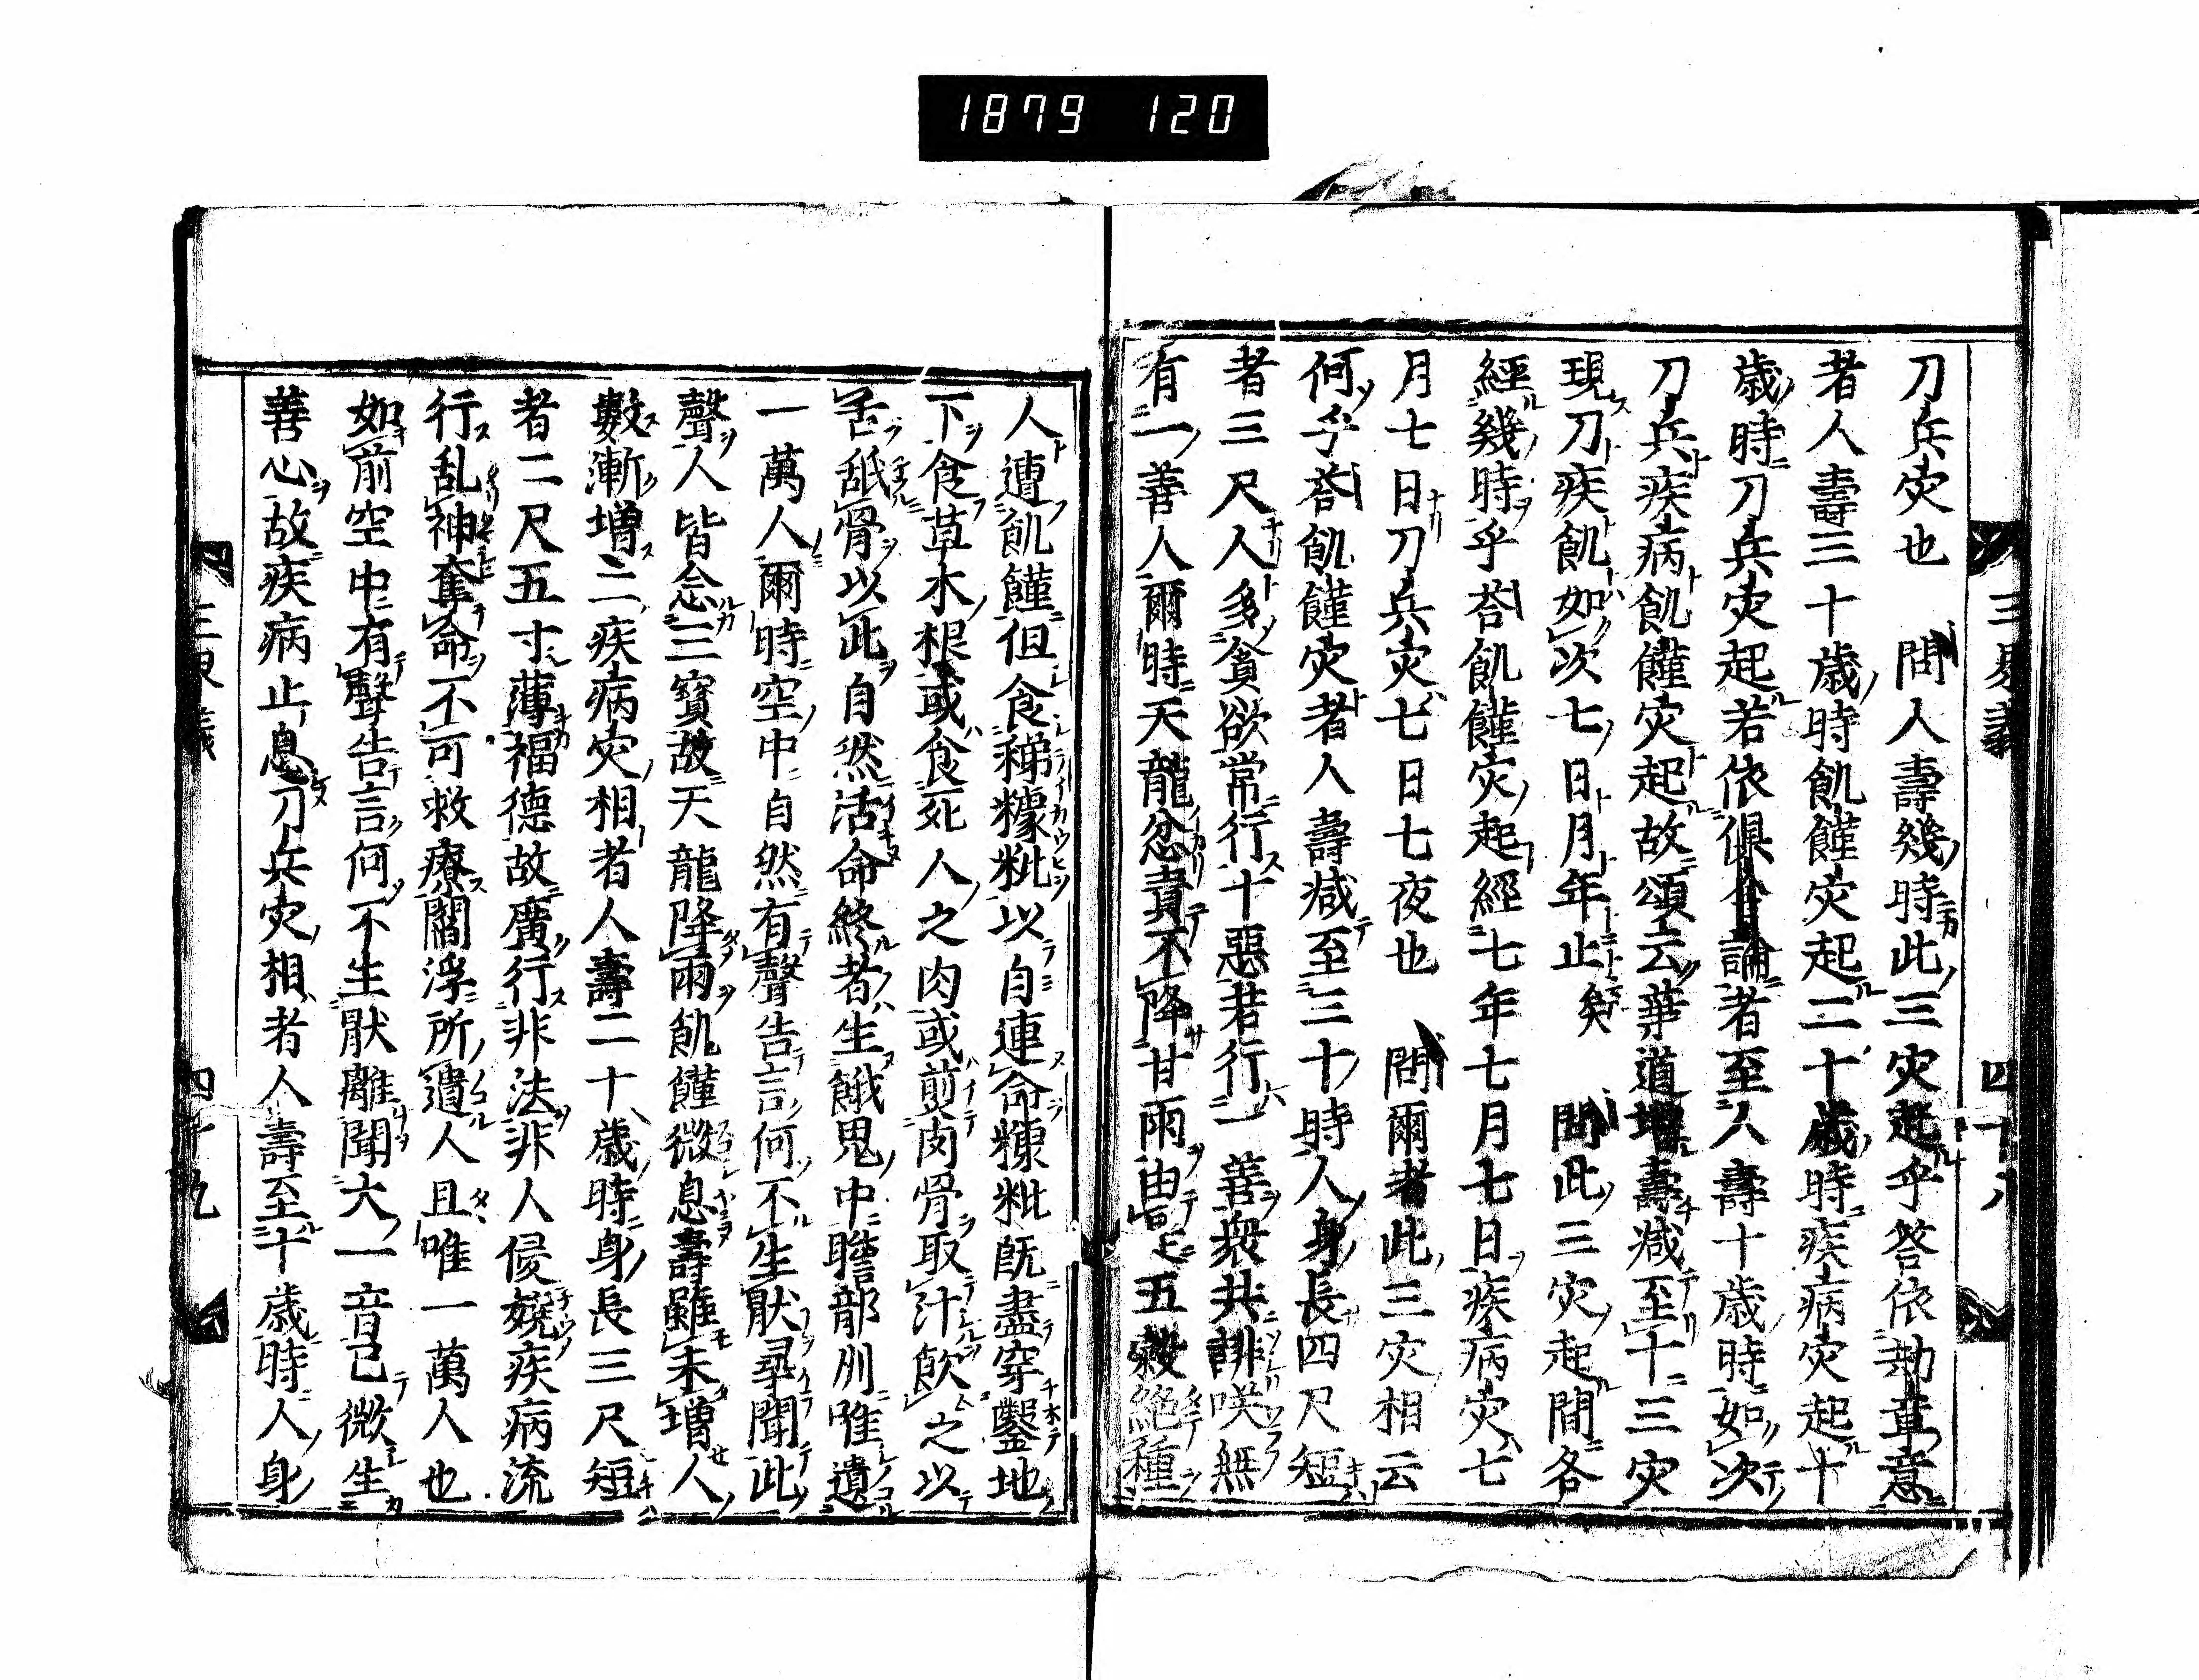 1879 120
三界義 四十八
刀兵灾也 問人壽幾時此三灾起乎答依劫章意
者人壽三十歳時飢饉灾起二十歳時疾病灾起十
歳時刀兵灾起若依倶舎論者至人壽十歳時如次
刀兵疾病飢饉灾起故頌云業道増壽减至十三灾
現刀疾飢如次七日月年止矣 問此三灾起間各
經幾時乎荅飢饉灾起經七年七月七日疾病灾七
月七日刀兵灾七日七夜也 問爾者此三灾相云
何乎荅飢饉灾者人壽减至三十時人身長四尺短
者三尺人多貪欲常行十惡若行一善衆共誹咲無
有一善人爾時天龍忿責不降甘雨由五穀絶種
人遭飢饉但食稊糠粃以自連命糠粃既盡穿鑿地
下食草木根或食死人之肉或煎肉骨取汁飮之以
舌舐骨以此自然活命終者生餓鬼中聸部州唯遺
一萬人爾時空中自然有聲告言何不生猒尋聞此
聲人皆念三寶故天龍降雨飢饉微息壽雖未増人
數漸増二疾病灾相者人壽二十歳時身長三尺短
者二尺五寸薄福德故廣行非法非人侵嬈疾病流
行乱神奪命不可救療閻浮所遺人且唯一萬人也
如前空中有聲告言何不生猒離聞大一音已微生
善心故疾病止息刀兵灾相者人壽至十歳時人身
四十九